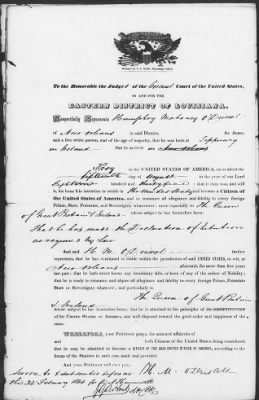 To the Honorable the Judges of the Circuit Court of the United States,
IN AND FOR THE
EASTERN DISTRICT OF LOUISIANA.
Respectfully Represents Humphrey Mahoney O'Driscol
of New Orleans in said District,
and a free white person, and of the age of majority, that he was born at Tipperary
in Ireland that he arrived in New Orleans
Troy in the UNITED STATES OF AMERICA, on or about the
fifteenth day of August in the year of our Lord
Eighteen hundred and thirty five that it then was, and still
is his bona fide intention to reside in the United States and to become a Citizen of
the United States of America, and to renounce all allegiance and fidelity to every foreign
Prince, State, Potentate, and Sovereignty whatsoever; and more especially to the Queen
of Great Britain & Ireland
whose subject he has heretofore been.
That he has made the Declaration of Intention
as required by Law
And H. M. O'Driscol further
represents, that he has continued to reside within the jurisdiction of said UNITED STATES, to wit, at
New Orleans
past; that he hath never borne any hereditary title, or been of any of the orders of Nobility; that
he is ready to renounce and abjure all allegiance and fidelity to every foreign Prince, Potentate,
State or Sovereignty whatsoever, and particularly to
the Queen of Great Britain
& Ireland
whose subject he has heretofore been; that he is attached to the principles of the CONSTITUTION
of the UNITED STATES OF AMERICA, and well disposed toward the good order and happiness of
the same.
WHEREFORE, your Petitioner prays, the annexed affidavits of
and Citizens of the United States, being considered,
that he may be admitted to become a CITIZEN OF THE SAID UNITED STATES OF AMERICA, according to the
forms of the STATUTES in such case made and provided.
And your Petitioner will ever pray.
Sworn to & subscribed before me H. M. O'Driscoll
this 28 February 184